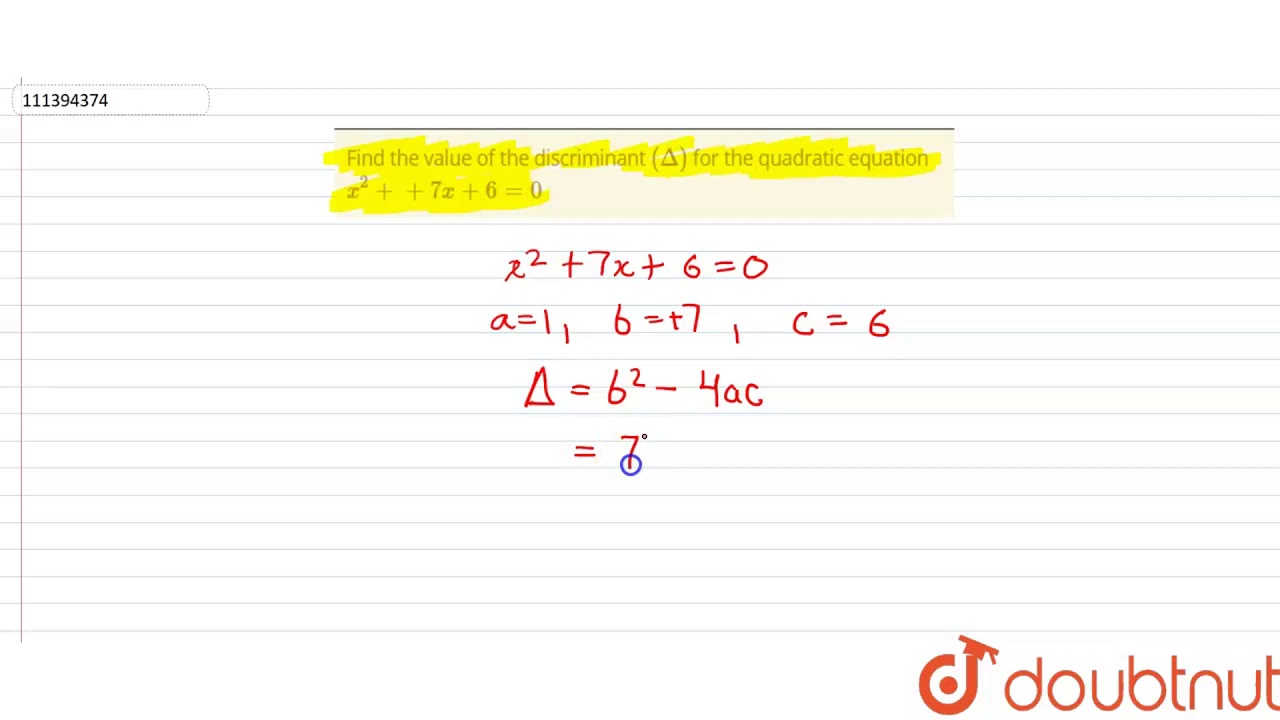 111394374
Find the value of the discriminant (Δ) for the quadratic equation
x² + + 7x + 6 = 0
x² + 7x + 6 = 0
a = 1, b = +7, c = 6
Δ = b² - 4ac
= 7
doubtnut